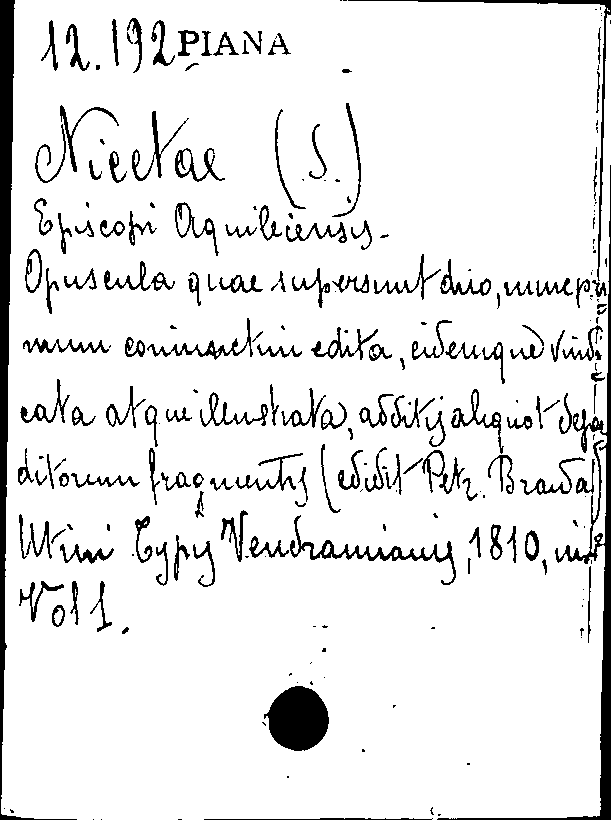 12.192 PIANA
Nicetae (S.)
Episcopi Aquileiensis.
Opuscula quae supersunt duo, nunc pri
mum coniunctim edita, eidemque vindi
cata atque illustrata, additis aliquot deper
ditorum fragmentis (edidit Petr. Braida)
Utini Typis Vendramianis, 1810, in
Vol 1.